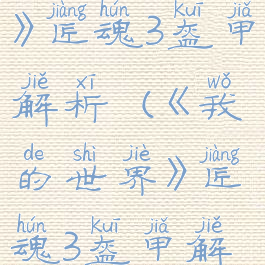 jiàng hún kuī jiǎ
》匠魂3盔甲
jiě xī wǒ
解析（《我
de shì jiè jiàng
的世界》匠
hún kuī jiǎ jiě
魂3盔甲解